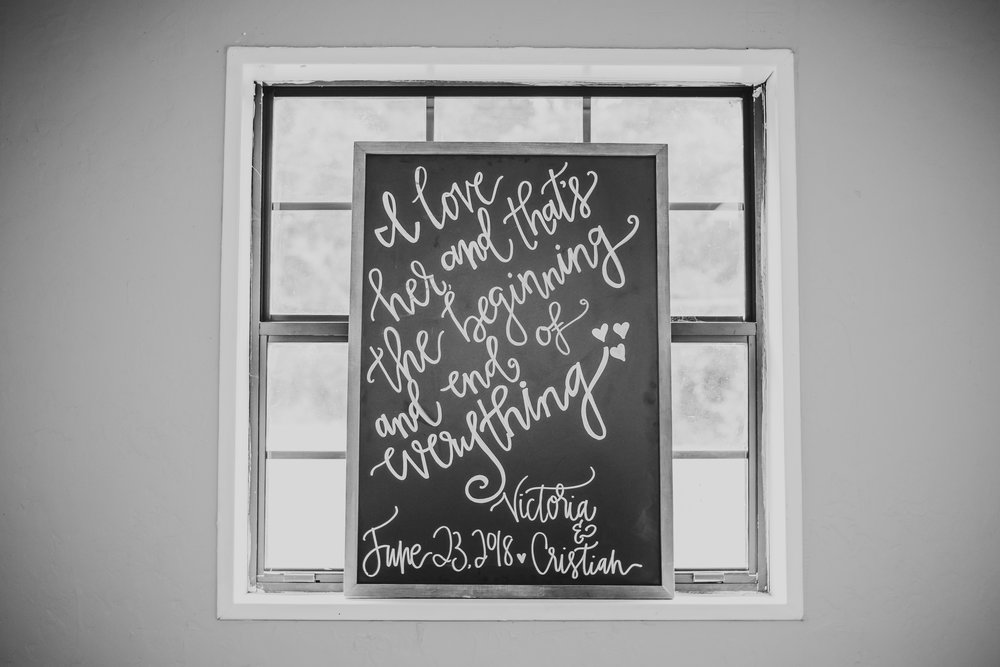 I love
her, and that's
the beginning
and end of
everything
Victoria
&
June 23, 2018 Cristian